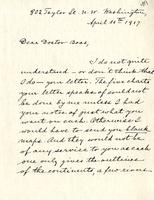 802 Taylor St. N.W. Washington,
April 10th 1917
Dear Doctor Boas,
I do not quite
understand – or don't think that
I do your letter. The five charts
your letter speaks of could not
be done by me unless I had
your notes of just what you
want on each. Otherwise I
would have to send you blank
maps. And they would not be
of any service to you as each
one only gives the outlines
of the continents, a few rivers